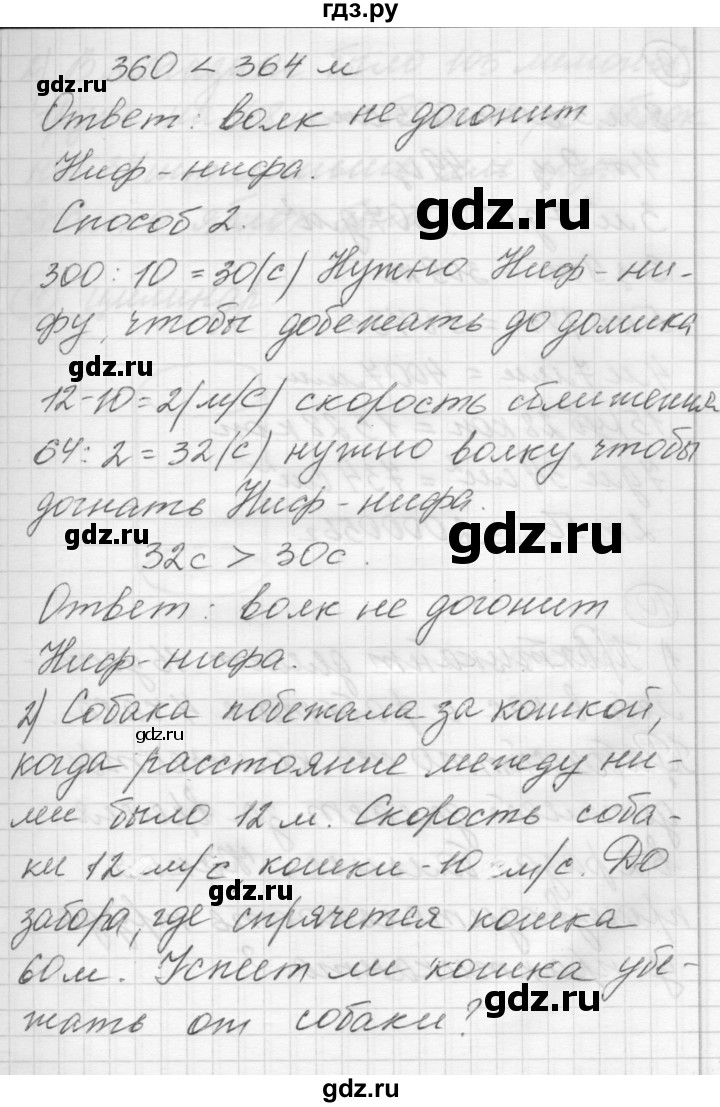 гдз.ру
360 < 364 м
gdz.ru
gdz.ru
Ответ: волк не догонит
Ниф-нифа.
gdz.ru
Способ 2.
300 : 10 = 30(с) Нужно Ниф-ни-
фу, чтобы добежать до домика
gdz.ru
12-10=2(м/с) скорость сближения
64: 2 = 32(с) нужно волку чтобы
догнать Ниф-нифа.
gdz.ru
gdz.ru
32с > 30с.
Ответ: волк не догонит
Ниф-нифа.
2) Собака побежала за кошкой,
gdz.ru
когда расстояние между ни-
ми было 12 м. Скорость соба-
ки 12 м/с, кошки-10 м/с. До
gdz.ru
забора, где спрячется кошка
60м. Успеет ли кошка убе-
gdz.ru
жать от собаки?
gdz.ru